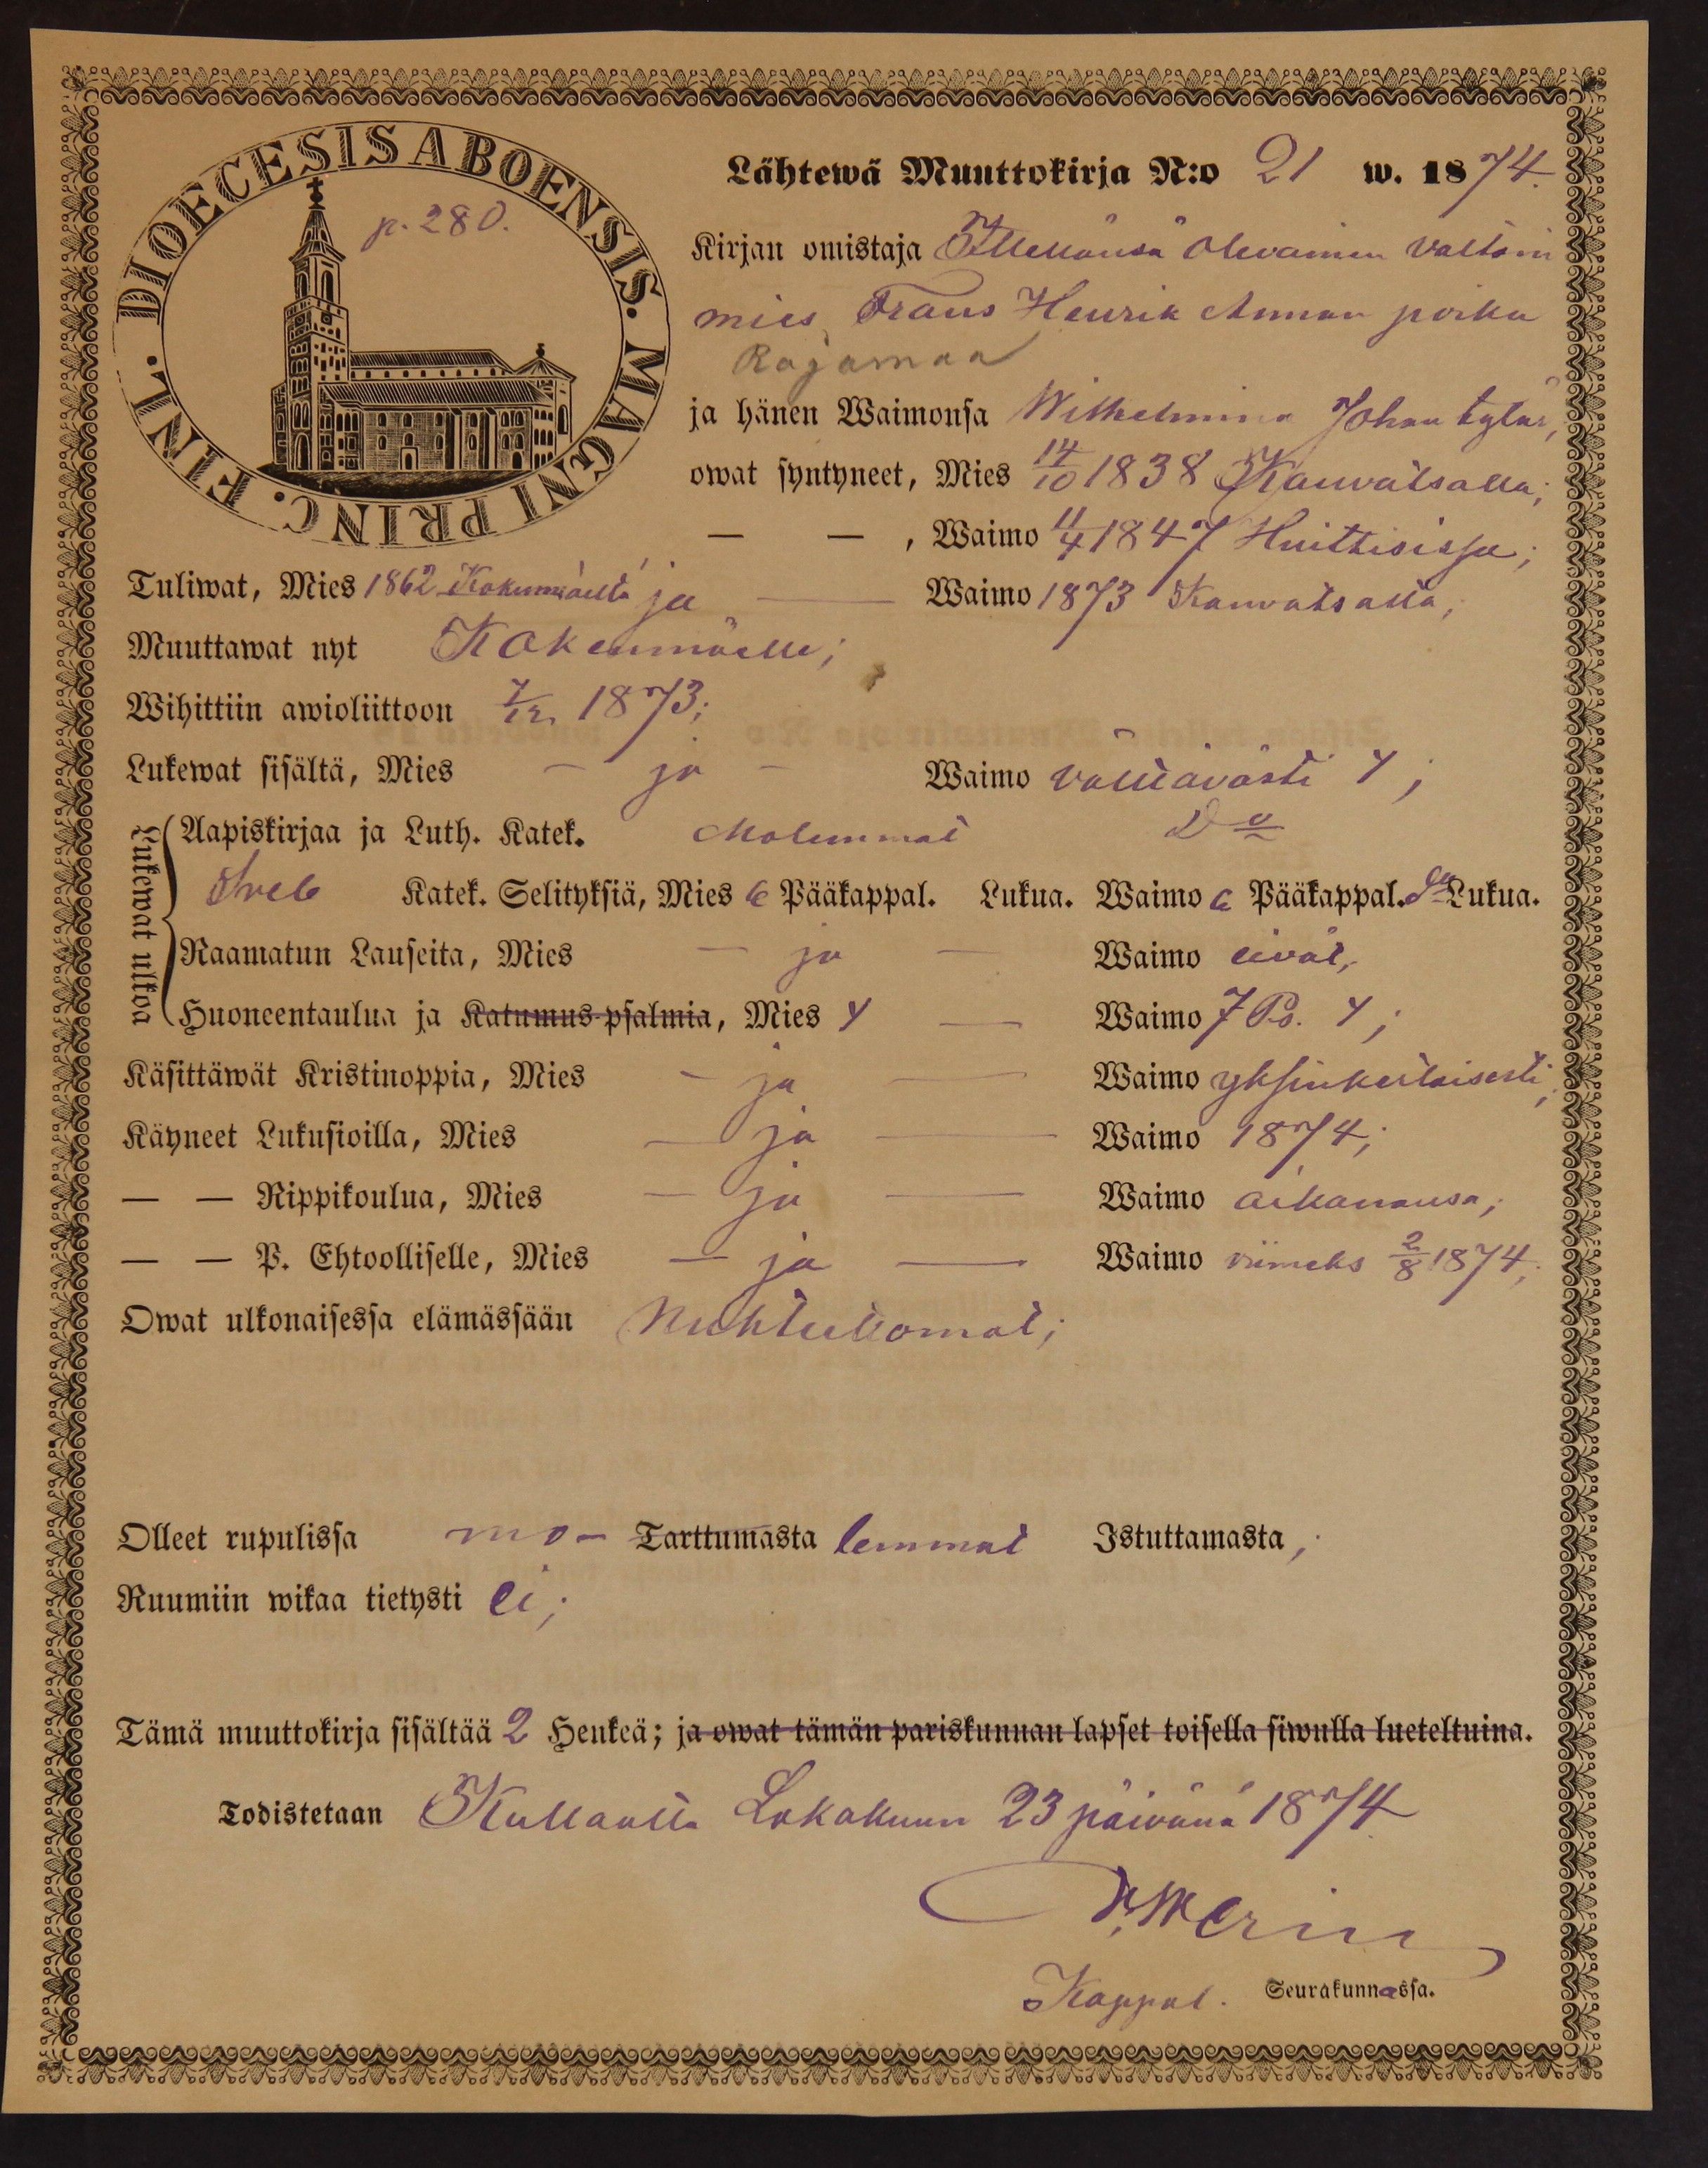 DIOECESIS ABOENSIS. MAGNI PRINC. FINL.
p. 280.
Lähtewä Muuttokirja N:o 21 w. 1874.
Kirjan omistaja Itellänsä Olevainen valtöin
mies Frans Henrik Annan poika
Rajamaa
ja hänen Waimonsa Wilhelmina Johan tytär,
owat syntyneet, Mies 14/10 1838 Kauvatsalla;
— — , Waimo 11/4 1847 Huittisissa;
Tuliwat, Mies 1862 Kokemäeltä ja — Waimo 1873 Kauvatsalta;
Muuttawat nyt Kokenmäelle;
Wihittiin awioliittoon 7/12 1873;
Lukewat sisältä, Mies — ja — Waimo välttävästi ;
Lukewat ulkoa
Aapiskirjaa ja Luth. Katek. Molemmat Do
Sveb Katek. Selityksiä, Mies 6 Pääkappal. Lukua. Waimo 6 Pääkappal. Do Lukua.
Raamatun Lauseita, Mies — ja — Waimo eivät,
Huoneentaulua ja Katumus-psalmia, Mies — Waimo 7 Ps. ;
Käsittäwät Kristinoppia, Mies — ja — Waimo yksinkertaisesti;
Käyneet Lukusioilla, Mies — ja — Waimo 1874;
— — Rippikoulua, Mies — ja — Waimo aikanansa;
— — P. Ehtoolliselle, Mies — ja — Waimo viimeks 2/8 1874;
Owat ulkonaisessa elämässään Nuhteettomat;
Olleet rupulissa mo- Tarttumasta lemmat Istuttamasta;
Ruumiin wikaa tietysti ei;
Tämä muuttokirja sisältää 2 Henkeä; ja owat tämän pariskunnan lapset toisella siwulla lueteltuina.
Todistetaan Kullaalla Lokakuun 23 päivänä 1874
Kappal. Seurakunnassa.